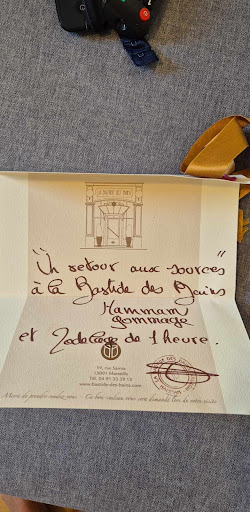 LA BASTIDE DES BAINS
"Un retour aux sources"
à la Bastide des Bains
Hammam
gommage
et Modelage de 1 heure.
19, rue Sainte
13001 Marseille
Tél. 04 91 33 39 13
www.bastide-des-bains.com
Merci de prendre rendez-vous
Ce bon cadeau vous sera demandé lors de votre visite